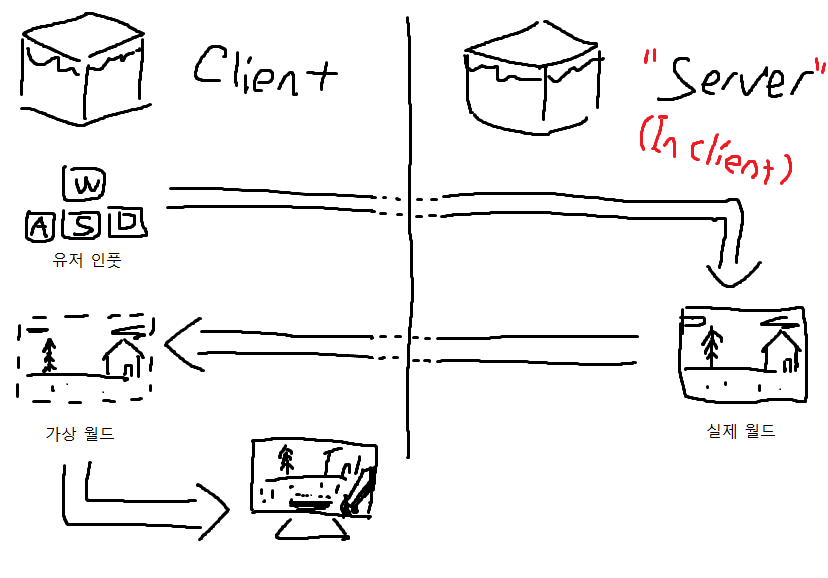 Client
"Server"
(In client)
W
A S D
유저 인풋
가상 월드
실제 월드